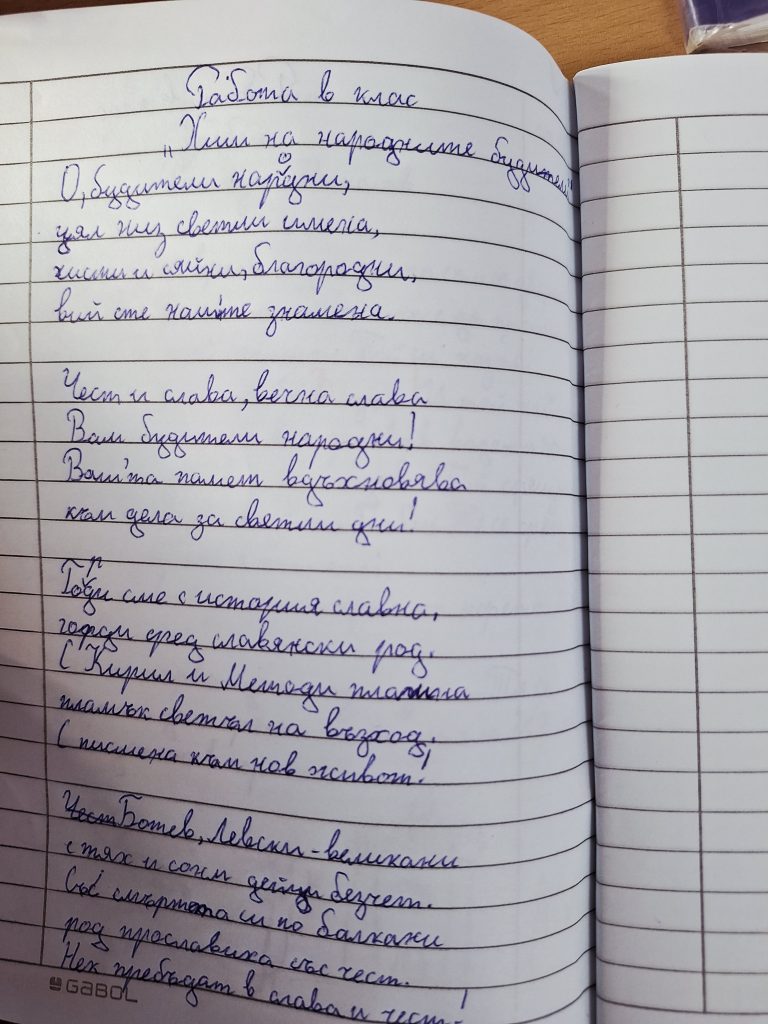 Работа в клас
„Химн на народните будители“
О, будители народни,
цял низ светли имена,
чисти и сяйни, благородни,
вий сте наш'те знамена.
Чест и слава, вечна слава
Вам будители народни!
Ваш'та памет вдъхновява
към дела за светли дни!
Горди сме с история славна,
горди сред славянски род.
С Кирил и Методи пламна
пламък светъл на възход.
С писмена към нов живот!
Ботев, Левски - великани
с тях и сонм дейци безчет.
Със смъртта си по балкани
род прославиха със чест.
Нек пребъдат в слава и чест!
GABOL